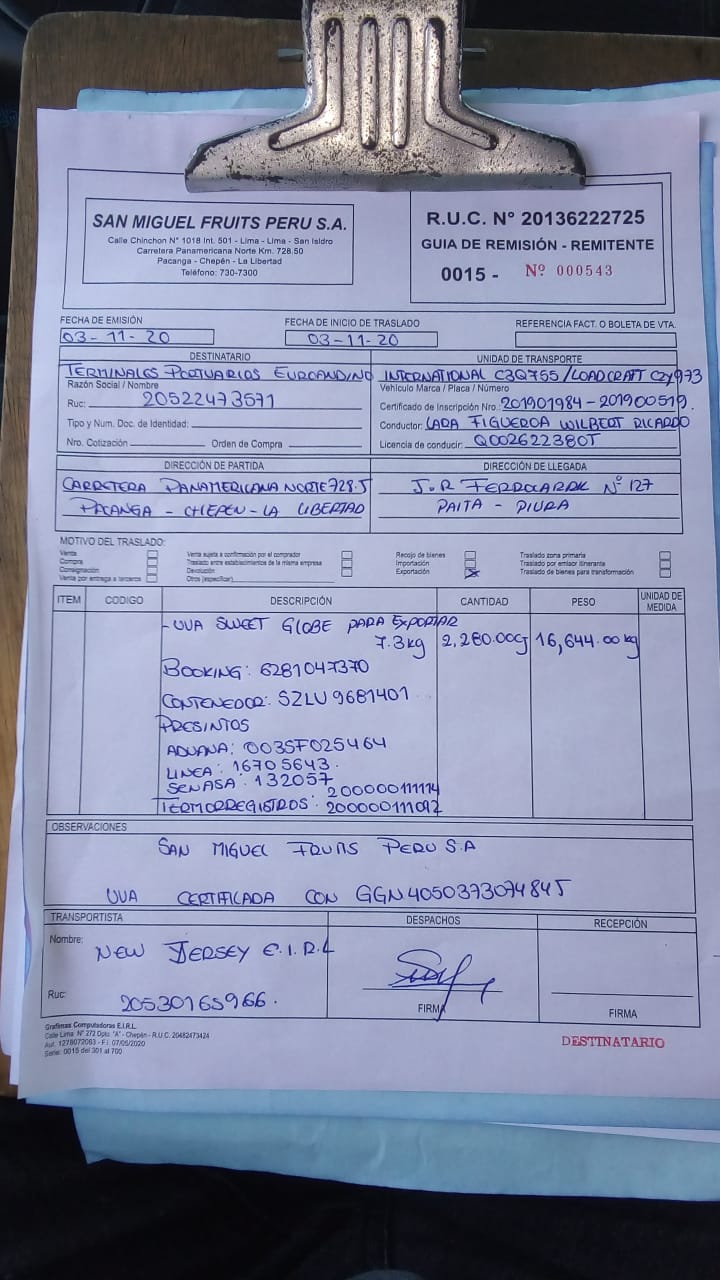 SAN MIGUEL FRUITS PERU S.A.
Calle Chinchon N° 1018 Int. 501 - Lima - Lima - San Isidro
Carretera Panamericana Norte Km. 728.50
Pacanga - Chepén - La Libertad
Teléfono: 730-7300
R.U.C. N° 20136222725
GUIA DE REMISIÓN - REMITENTE
0015 - Nº 000543
FECHA DE EMISIÓN
03-11-20
FECHA DE INICIO DE TRASLADO
03-11-20
REFERENCIA FACT. O BOLETA DE VTA.
DESTINATARIO
TERMINALES PORTUARIOS EUROANDINO
Razón Social / Nombre
Ruc: 20522473571
Tipo y Num. Doc. de Identidad:
Nro. Cotización: Orden de Compra
UNIDAD DE TRANSPORTE
INTERNATIONAL C3Q755/LOADCRAFT CZY973
Vehículo Marca / Placa / Número
Certificado de Inscripción Nro.: 201901984-201900519.
Conductor: LARA FIGUEROA WILBERT RICARDO
Licencia de conducir: Q0026223805
DIRECCIÓN DE PARTIDA
CARRETERA PANAMERICANA NORTE 728.5
PACANGA - CHEPEN - LA LIBERTAD
DIRECCIÓN DE LLEGADA
Nº 127
PAITA - PIURA
MOTIVO DEL TRASLADO:
Venta
Compra
Consignación
Venta por entrega a terceros
Venta sujeta a confirmación por el comprador
Traslado entre establecimientos de la misma empresa
Devolución
Otros (especificar)
Recojo de bienes
Importación
Exportación
Traslado zona primaria
Traslado por emisor itinerante
Traslado de bienes para transformación
ITEM CODIGO DESCRIPCIÓN CANTIDAD PESO UNIDAD DE MEDIDA
- UVA SWEET GLOBE PARA EXPORTAR
7.3kg 2,280.00 16,644.00 kg
BOOKING: 6281047370
CONTENEDOR: SZLU 9681401
PRESINTOS
ADUANA: 003SF025464
LINEA: 16705643.
SENASA: 132057
200000111114
TERMORREGISTROS: 200000111092
OBSERVACIONES
SAN MIGUEL FRUITS PERU S.A
UVA CERTIFICADA CON GGN 4050373074845
TRANSPORTISTA
Nombre: NEW JERSEY E.I.R.L
Ruc: 20530165966.
DESPACHOS
FIRMA
RECEPCIÓN
FIRMA
Grafimas Computadoras E.I.R.L.
Calle Lima N° 272 Dpto. "A" - Chepén - R.U.C. 20482473424
Aut. 1278072063 - F.I. 07/05/2020
Serie: 0015 del 301 al 700
DESTINATARIO